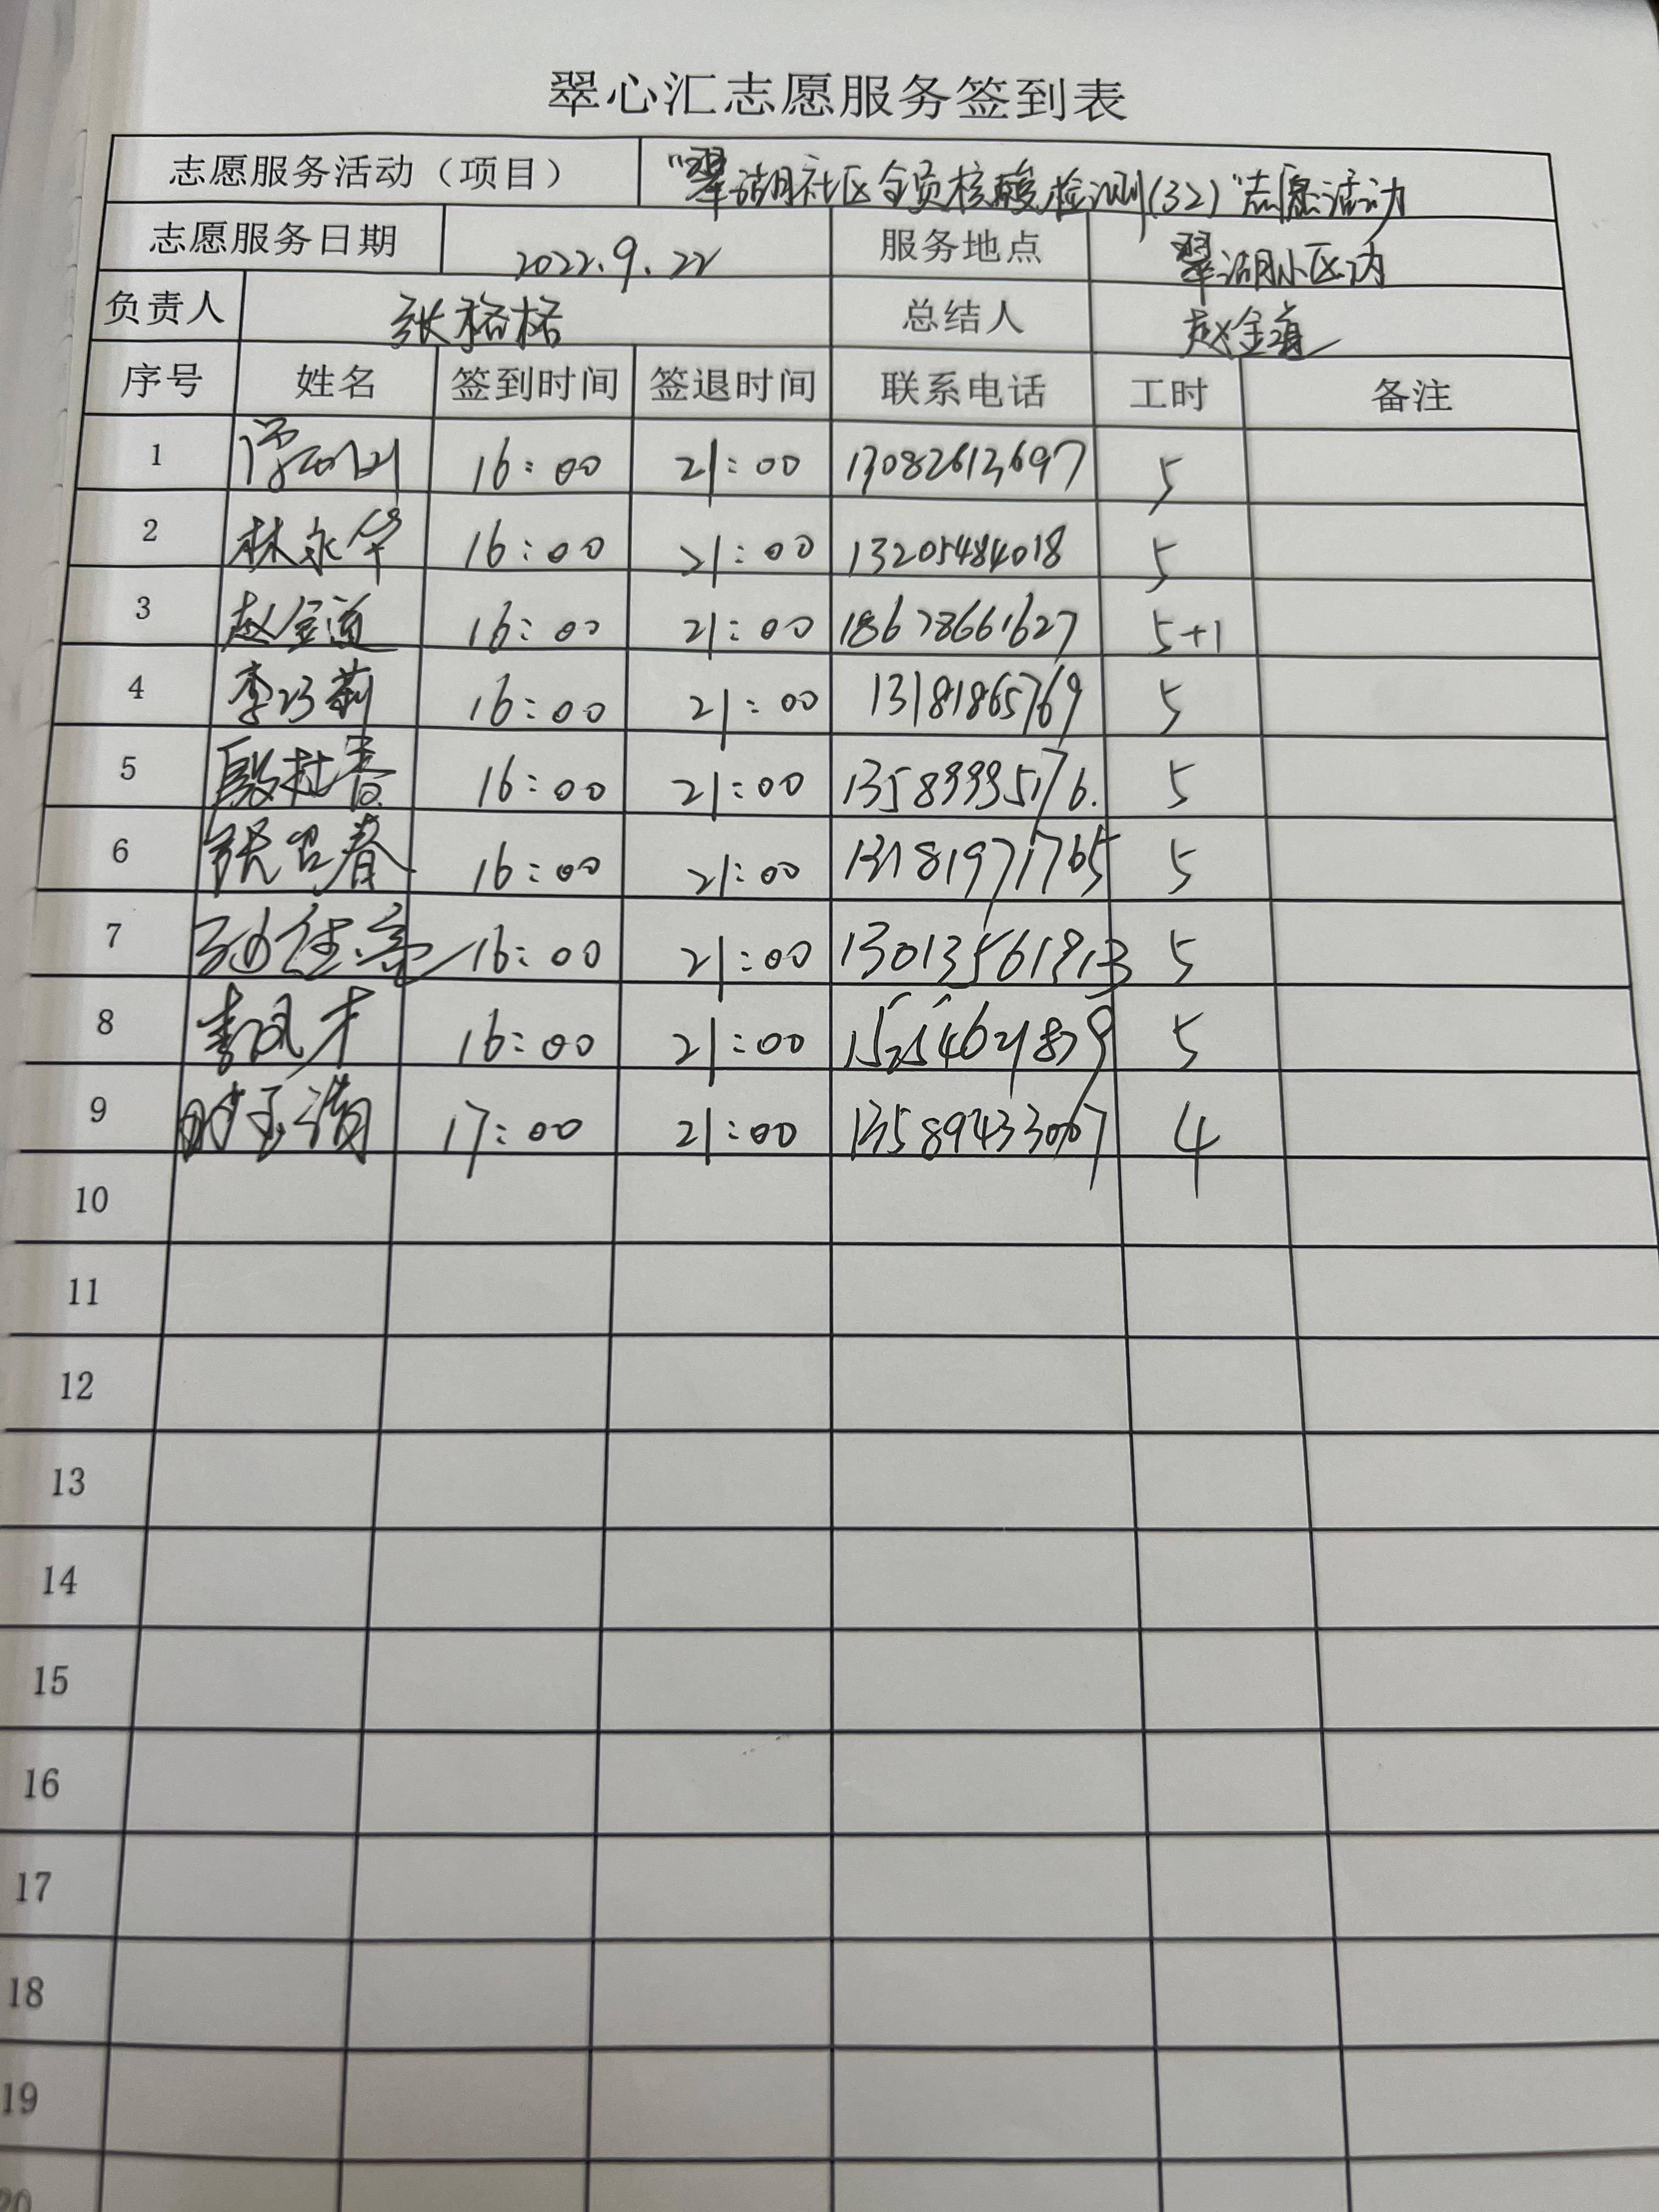 翠心汇志愿服务签到表
志愿服务活动（项目） "翠湖社区全员核酸检测(32)"志愿活动
志愿服务日期 2022.9.22 服务地点 翠湖小区内
负责人 张格格 总结人 赵金道
序号 姓名 签到时间 签退时间 联系电话 工时 备注
1 16:00 21:00 13082613697 5
2 林永华 16:00 21:00 13205484018 5
3 赵金道 16:00 21:00 18678661627 5+1
4 李巧莉 16:00 21:00 13181865769 5
5 殷桂春 16:00 21:00 13589995176. 5
6 张召春 16:00 21:00 13181971765 5
7 16:00 21:00 5
8 李凤才 16:00 21:00 5
9 17:00 21:00 4
10
11
12
13
14
15
16
17
18
19
20